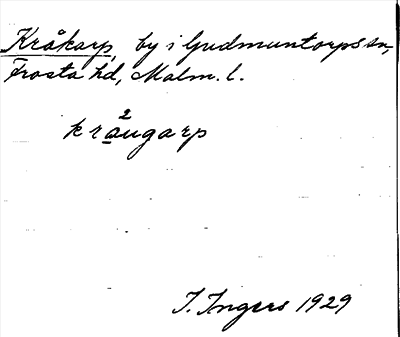 Kråkarp, by i Gudmuntorps sn,
Frosta hd, Malm. l.
2
kraugarp
I. Ingers 1929